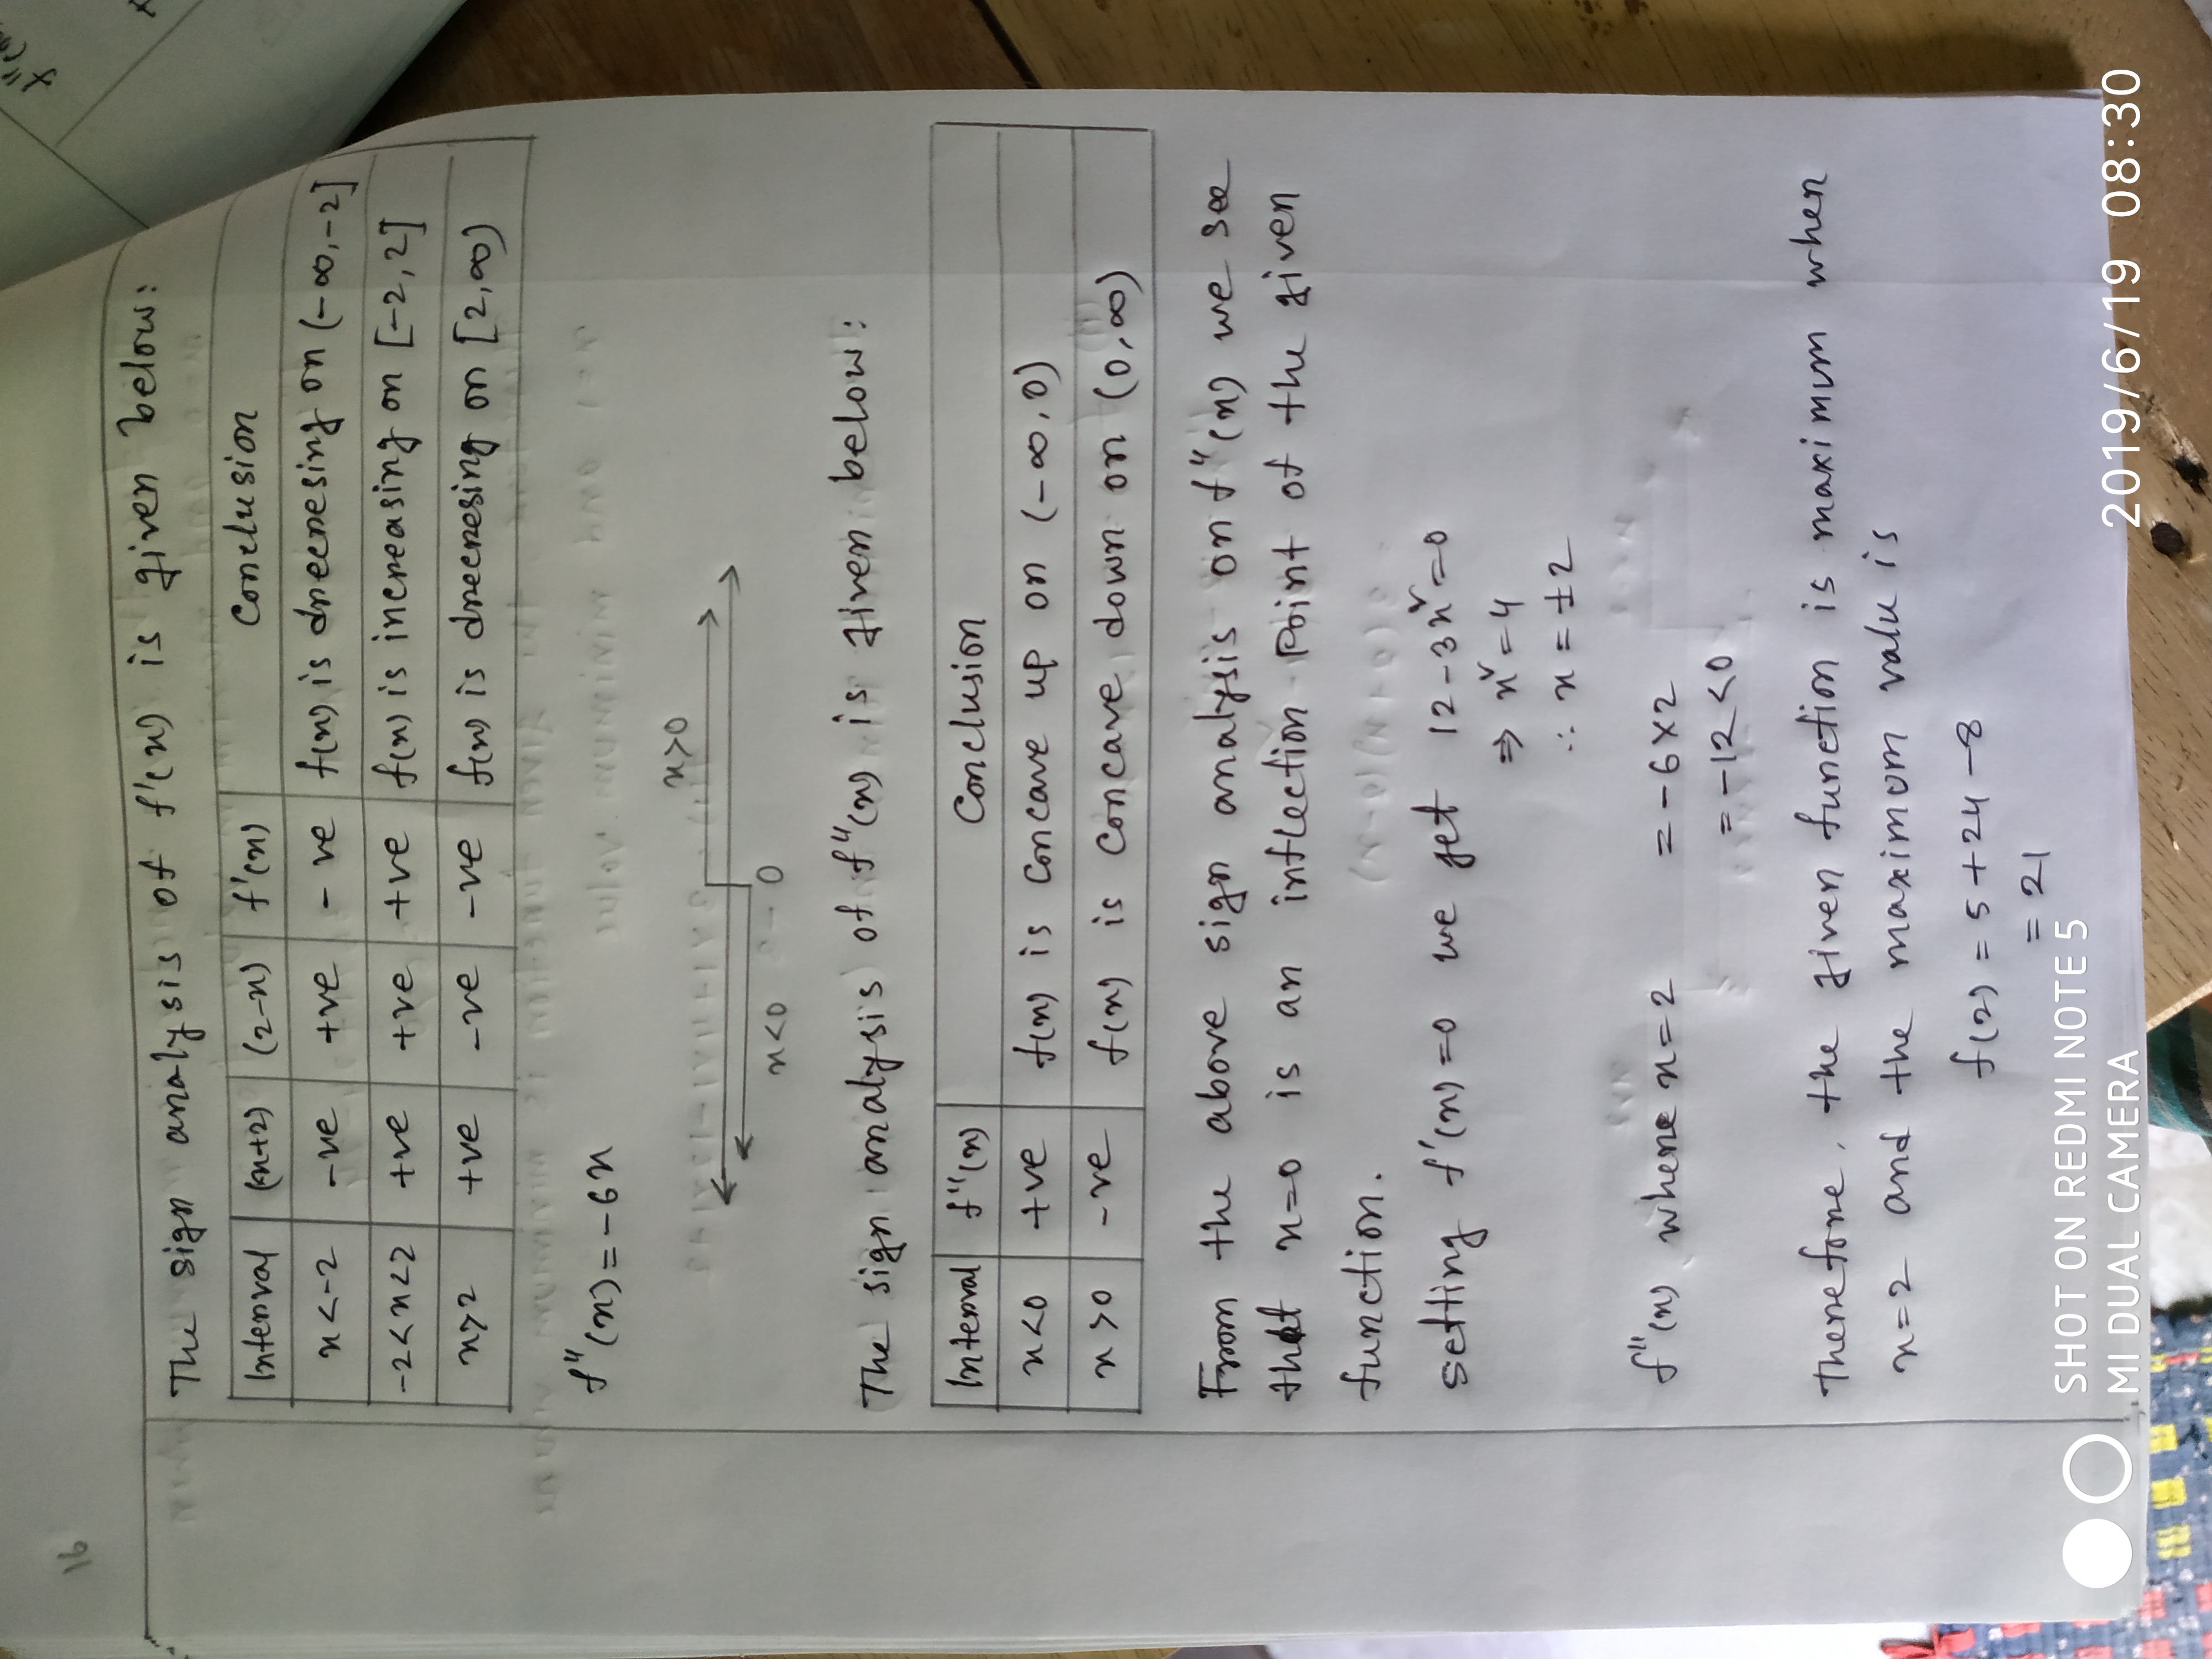 16
The sign analysis of f'(x) is given below:
Interval (x+2) (2-x) f'(x) Conclusion
x<-2 -ve +ve -ve f(x) is drecresing on (-∞,-2]
-2<x<2 +ve +ve +ve f(x) is increasing on [-2,2]
x>2 +ve -ve -ve f(x) is drecresing on [2,∞)
f''(x)=-6x
x>0
x<0 0
The sign analysis of f''(x) is given below:
Interval f''(x) Conclusion
x<0 +ve f(x) is concave up on (-∞,0)
x>0 -ve f(x) is concave down on (0,∞)
From the above sign analysis on f''(x) we see
that x=0 is an inflection point of the given
function.
setting f'(x)=0 we get 12-3x²=0
⇒ x²=4
∴ x=±2
f''(x) where x=2 =-6×2
=-12<0
Therefore, the given function is maximum when
x=2 and the maximum valu is
f(2)=5+24-8
=21
SHOT ON REDMI NOTE 5
MI DUAL CAMERA
2019/6/19 08:30